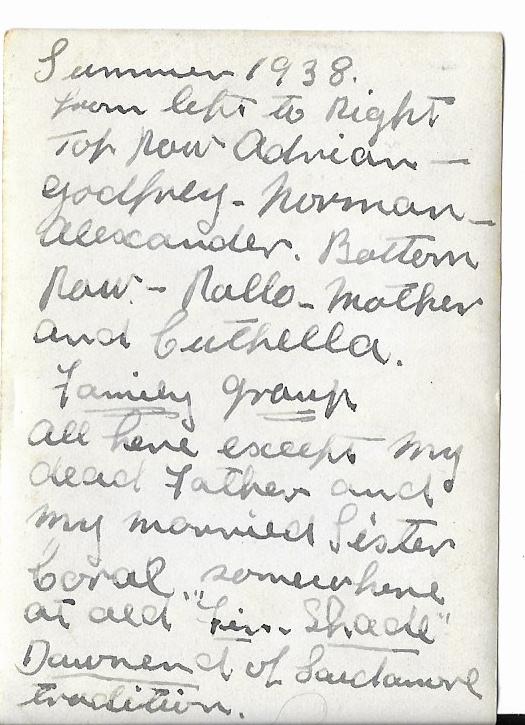 Summer 1938.
From left to Right
Top Row Adrian —
Godfrey - Norman —
Alexander. Bottom
Row. - Rollo - Mother
and Cuthella.
Family group
All here except my
dead Father and
my married Sister
Coral, somewhere
at old "Fir - Shade"
of
tradition.